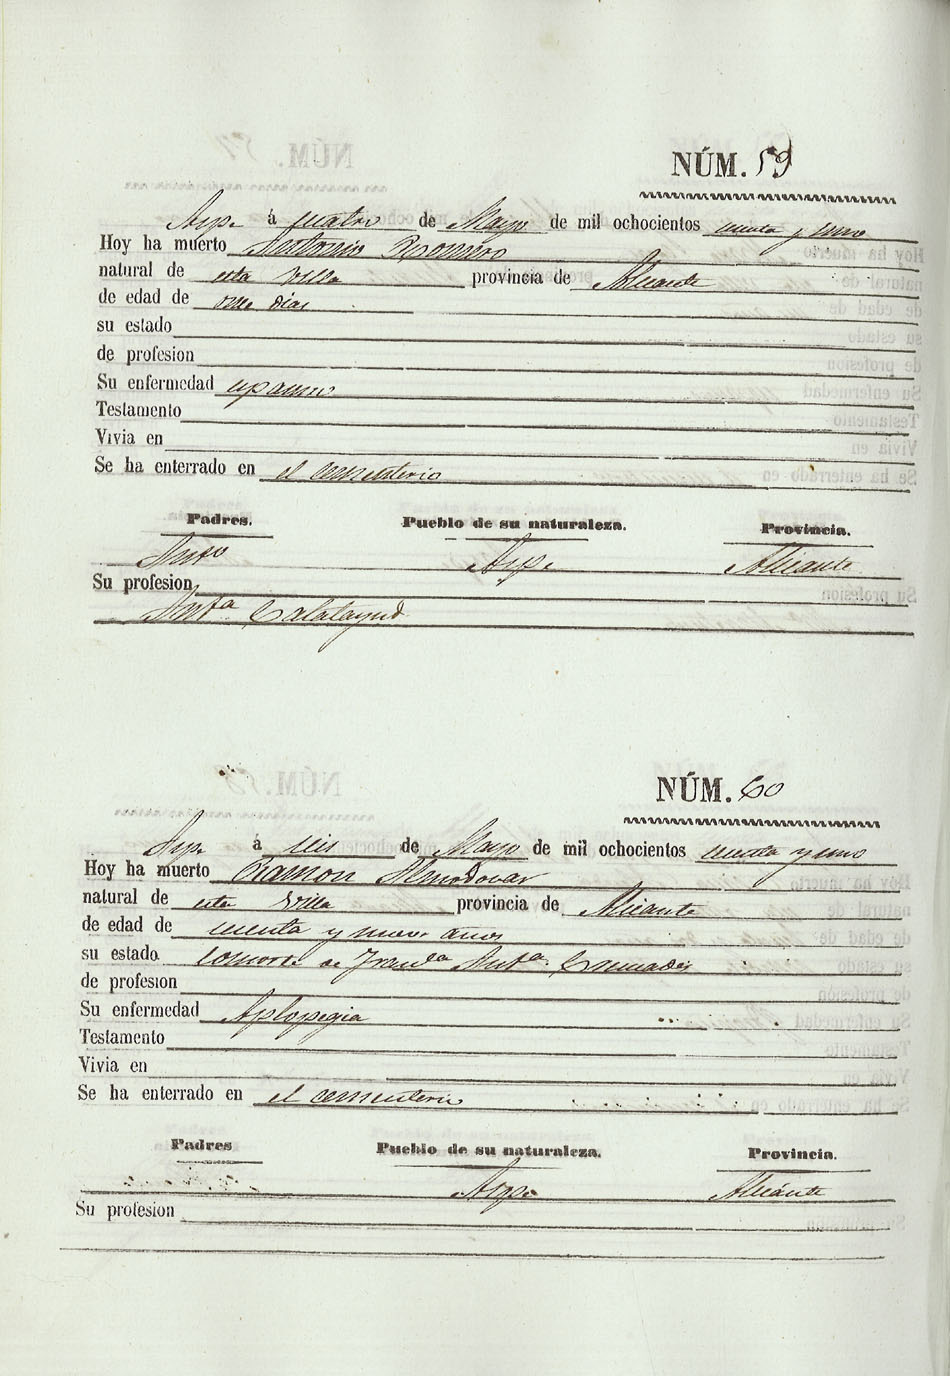 NÚM. 59
Aspe á cuatro de Mayo de mil ochocientos y uno
Hoy ha muerto Antonio Romero
natural de esta Villa provincia de Alicante
de edad de once dias
su estado
de profesion
Su enfermedad espasmo
Testamento
Vivia en
Se ha enterrado en el cementerio
Padres. Pueblo de su naturaleza. Provincia.
Antº Aspe Alicante
Su profesion
Antª Calatayud
NÚM. 60
Aspe á seis de Mayo de mil ochocientos y uno
Hoy ha muerto Ramon Almodovar
natural de esta Villa provincia de Alicante
de edad de y nueve años
su estado consorte de Franca Antª
de profesion
Su enfermedad Aplopegia
Testamento
Vivia en
Se ha enterrado en el cementerio
Padres Pueblo de su naturaleza. Provincia.
Aspe Alicante
Su profesion